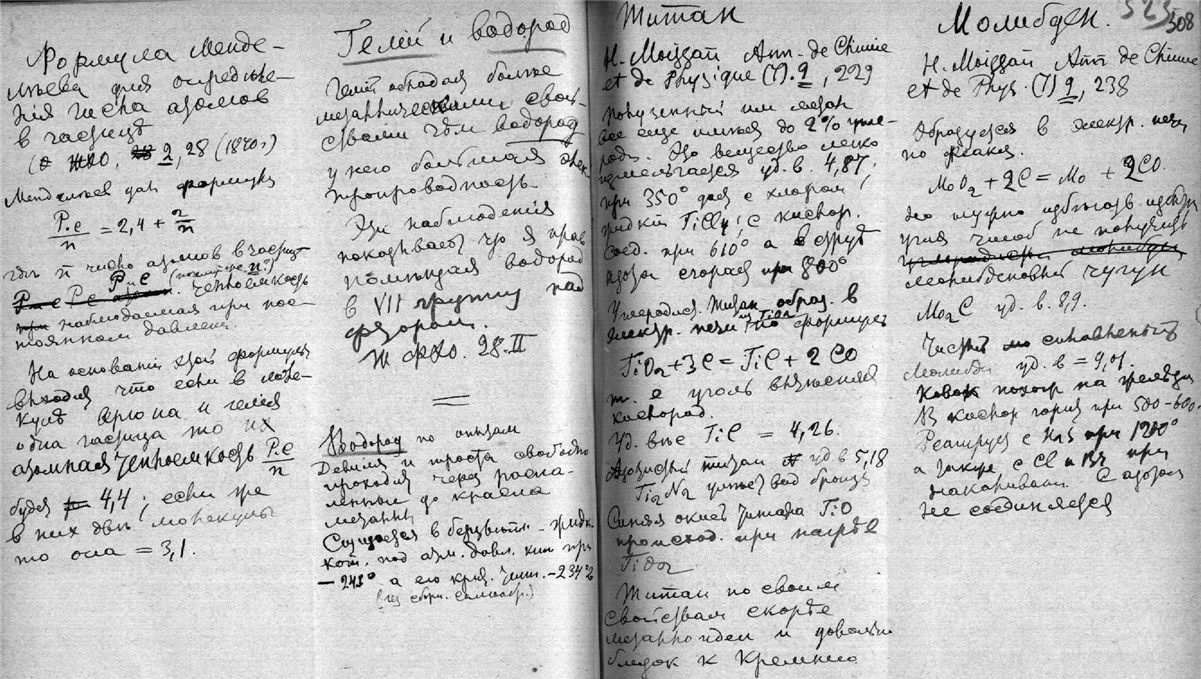 Формула Менде-
лѣева для опредѣле-
нія числа атомов
в частицѣ
ЖХО, 2, 28 (1870г)
Менделѣев дал формулу
P.c/n = 2,4 + 2/n
гдѣ n число атомов в частицѣ
P и C
P C теплоемкость
наблюдаемая при пос-
тоянном давлен.
На основаніи этой формулы
выходит что если в моле-
кулѣ Аргона и гелія
одна частица то их
атомная теплоемкость P.c/n
будет 4,4; если же
в них двѣ молекулы
то она = 3,1.
Гелій и водород
Гелій обладая болѣе
металлическими свой-
ствами чѣм водород
у него большая элек.
тропроводность.
Эти наблюденія
показывает что я прав
помѣщая водород
в VII группу над
фтором.
Ж ФХО. 28. II
Водород по опытам
Девилля и Троста свободно
проходит через раска-
ленные до красна
металлы
Сгущается в безцвѣтн. жидк.
кот. под атм. давл. кип при
-243° а его крит. темп. -234°
Титан
H. Moissan Ann. de Chimie
et de Physique (7). 9, 229
полученный им титан
все еще имѣл до 2% угле-
рода. Это вещество легко
измельчается уд. в. 4,87,
при 350° дает с хлором
жидкій TiCl4; с кислор.
соед. при 610° а в струѣ
азота сгорает при 800°
Углеродист. титан образ. в
электр. печи из TiO2 по формулѣ
TiO2 + 3C = TiC + 2CO
т. е уголь вытѣсняет
кислород.
Уд. вѣс TiC = 4,26.
Азотистый титан уд в 5,18
Ti2N2 имѣет вид бронзы
Синяя окись титана TiO
происход. при нагрѣв
TiO2
Титан по своим
свойствам скорѣе
металлоиден и довольно
близок к Кремнію
323
308
Молибден.
H. Moissan Ann de Chimie
et de Phys. (7) 9, 238
Образуется в электр. печи
по реакц.
MoO2 + 2C = Mo + 2CO.
но нужно избѣгать избытк
угля чтоб не получить
молибденовый чугун
Mo2C уд. в. 8,9.
Чистый сплавленый
Молибд. уд. в = 9,01.
Ковок похож на желѣзо
В кислор горит при 500-600°
Реагирует с H2S при 1200°
а также с Cl и Br при
накаливан. С азотом
не соединяется